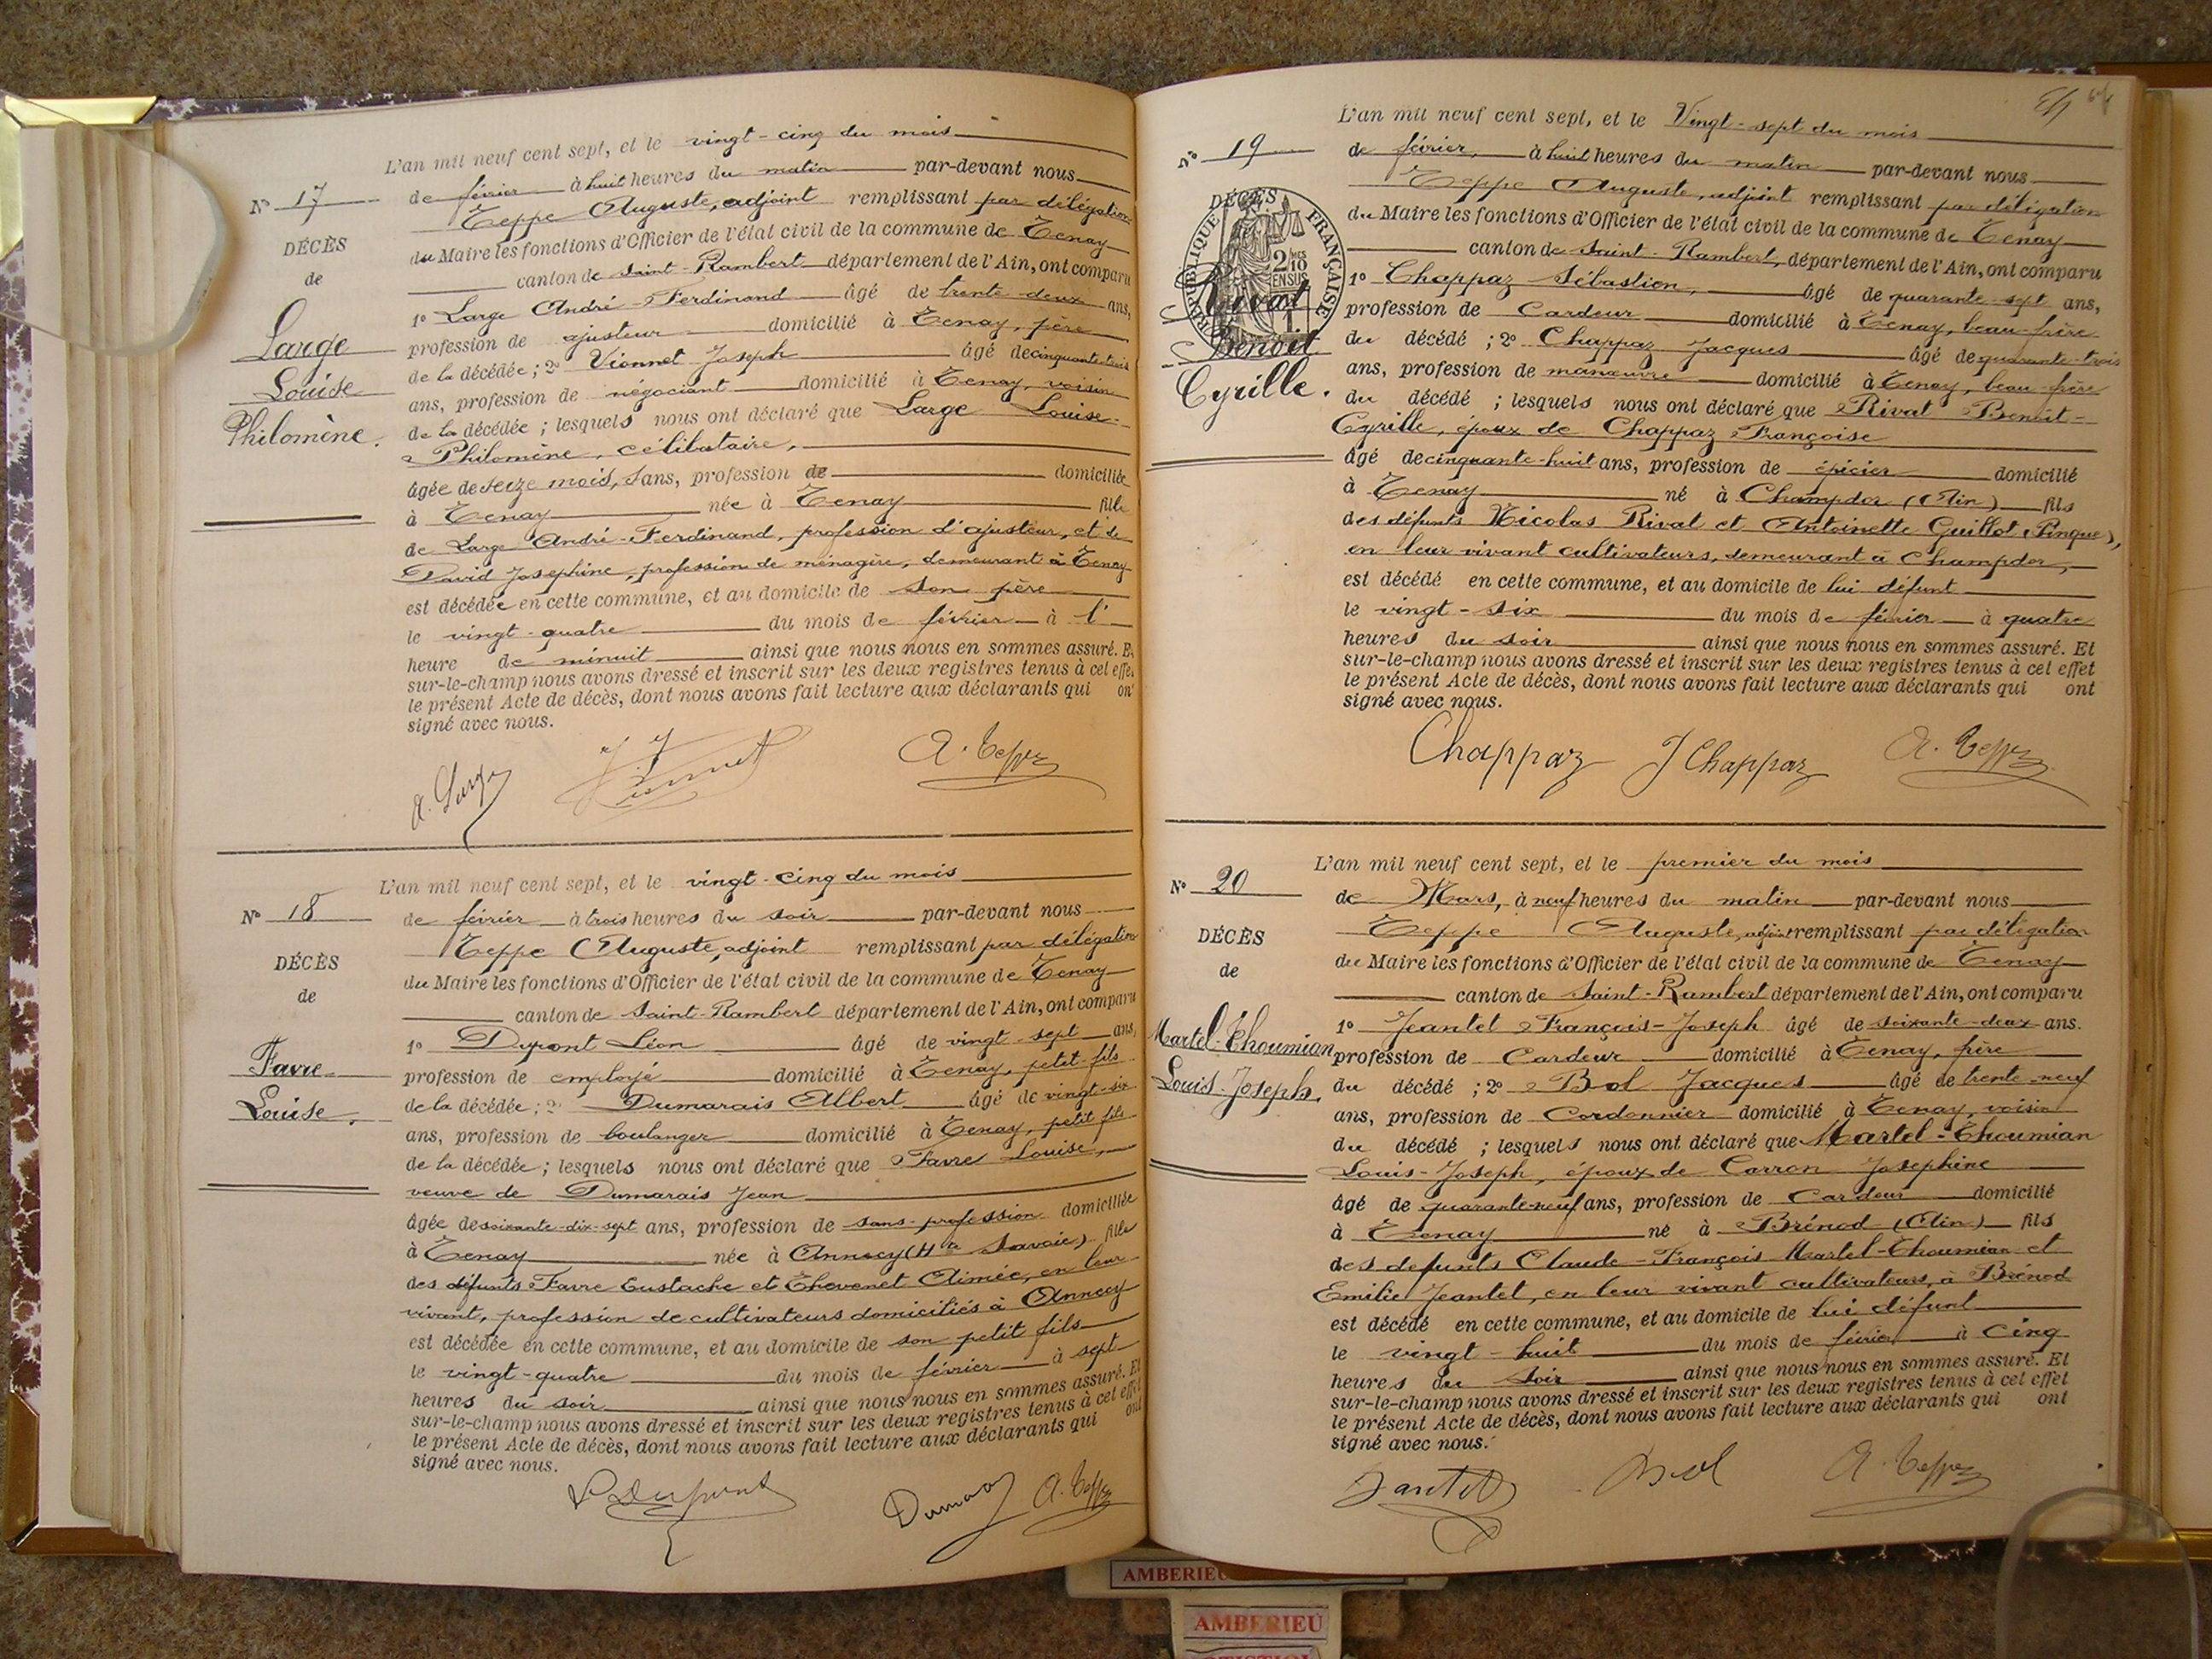 L'an mil neuf cent sept, et le vingt-cinq du mois
N° 17
de février à huit heures du matin par-devant nous
Teppe Auguste, adjoint remplissant par délégation
DÉCÈS
du Maire les fonctions d'Officier de l'état civil de la commune de Tenay
de
canton de Saint-Rambert département de l'Ain, ont comparu
1° Large André-Ferdinand âgé de trente-deux ans,
Large
profession de ajusteur domicilié à Tenay, père
de la décédée ; 2° Vionnet Joseph âgé de cinquante-trois
Louise
ans, profession de négociant domicilié à Tenay, voisin
Philomène.
de la décédée ; lesquels nous ont déclaré que Large Louise-
Philomène, célibataire,
âgée de seize mois, sans, profession de domiciliée
à Tenay née à Tenay fille
de Large André-Ferdinand, profession d'ajusteur, et de
David Josephine, profession de ménagère, demeurant à Tenay
est décédée en cette commune, et au domicile de son père
le vingt-quatre du mois de février à l'
heure de minuit ainsi que nous nous en sommes assuré. Et
sur-le-champ nous avons dressé et inscrit sur les deux registres tenus à cel effet
le présent Acte de décès, dont nous avons fait lecture aux déclarants qui ont
signé avec nous.
A. Large Vionnet A. Teppe
L'an mil neuf cent sept, et le vingt-cinq du mois
N° 18
de février à trois heures du soir par-devant nous
Teppe Auguste, adjoint remplissant par délégation
DÉCÈS
du Maire les fonctions d'Officier de l'état civil de la commune de Tenay
de
canton de Saint-Rambert département de l'Ain, ont comparu
1° Dupont Léon âgé de vingt-sept ans,
Favre
profession de employé domicilié à Tenay, petit-fils
Louise.
de la décédée ; 2° Dumarais Albert âgé de vingt-six
ans, profession de boulanger domicilié à Tenay, petit fils
de la décédée ; lesquels nous ont déclaré que Favre Louise,
veuve de Dumarais Jean
âgée de soixante-dix-sept ans, profession de sans-profession domiciliée
à Tenay née à Annecy (Hte Savoie) fille
des défunts Favre Eustache et Thevenet Aimée, en leur
vivant, profession de cultivateurs domiciliés à Annecy
est décédée en cette commune, et au domicile de son petit fils
le vingt-quatre du mois de février à sept
heures du soir ainsi que nous nous en sommes assuré. Et
sur-le-champ nous avons dressé et inscrit sur les deux registres tenus à cet effet
le présent Acte de décès, dont nous avons fait lecture aux déclarants qui ont
signé avec nous.
L Dupont A. Teppe
L'an mil neuf cent sept, et le Vingt-sept du mois
N° 19
de février, à huit heures du matin par-devant nous
Teppe Auguste, adjoint remplissant par délégation
DÉCÈS
RÉPUBLIQUE FRANÇAISE
2 MES
10
EN SUS
du Maire les fonctions d'Officier de l'état civil de la commune de Tenay
canton de Saint-Rambert, département de l'Ain, ont comparu
1° Chappaz Sébastien, âgé de quarante-sept ans,
Rivat
profession de Cardeur domicilié à Tenay, beau-frère
Benoit
du décédé ; 2° Chappaz Jacques âgé de quarante-trois
Cyrille.
ans, profession de manœuvre domicilié à Tenay, beau-frère
du décédé ; lesquels nous ont déclaré que Rivat Benoit-
Cyrille, époux de Chappaz Françoise
âgé de cinquante-huit ans, profession de épicier domicilié
à Tenay né à Champdor (Ain) fils
des défunts Nicolas Rivat et Antoinette Guillot (Pinque),
en leur vivant cultivateurs, demeurant à Champdor,
est décédé en cette commune, et au domicile de lui défunt
le vingt-six du mois de février à quatre
heures du soir ainsi que nous nous en sommes assuré. Et
sur-le-champ nous avons dressé et inscrit sur les deux registres tenus à cel effet
le présent Acte de décès, dont nous avons fait lecture aux déclarants qui ont
signé avec nous.
Chappaz J Chappaz A. Teppe
L'an mil neuf cent sept, et le premier du mois
N° 20
de Mars, à neuf heures du matin par-devant nous
Teppe Auguste, adjoint remplissant par délégation
DÉCÈS
du Maire les fonctions d'Officier de l'état civil de la commune de Tenay
de
canton de Saint-Rambert département de l'Ain, ont comparu
1° Jeantet François-Joseph âgé de soixante-deux ans.
Martel-Thoumian
profession de Cardeur domicilié à Tenay, frère
Louis-Joseph.
du décédé ; 2° Bol Jacques âgé de trente-neuf
ans, profession de Cordonnier domicilié à Tenay, voisin
du décédé ; lesquels nous ont déclaré que Martel-Thoumian
Louis-Joseph, époux de Carron Josephine
âgé de quarante-neuf ans, profession de Cardeur domicilié
à Tenay né à Brénod (Ain) fils
des défunts Claude-François Martel-Thoumian et
Emilie Jeantet, en leur vivant cultivateurs, à Brénod
est décédé en cette commune, et au domicile de lui défunt
le vingt-huit du mois de février à cinq
heures du soir ainsi que nous nous en sommes assuré. Et
sur-le-champ nous avons dressé et inscrit sur les deux registres tenus à cet effet
le présent Acte de décès, dont nous avons fait lecture aux déclarants qui ont
signé avec nous.
Jantet Bol A. Teppe
AMBERIEU
AMBERIEU